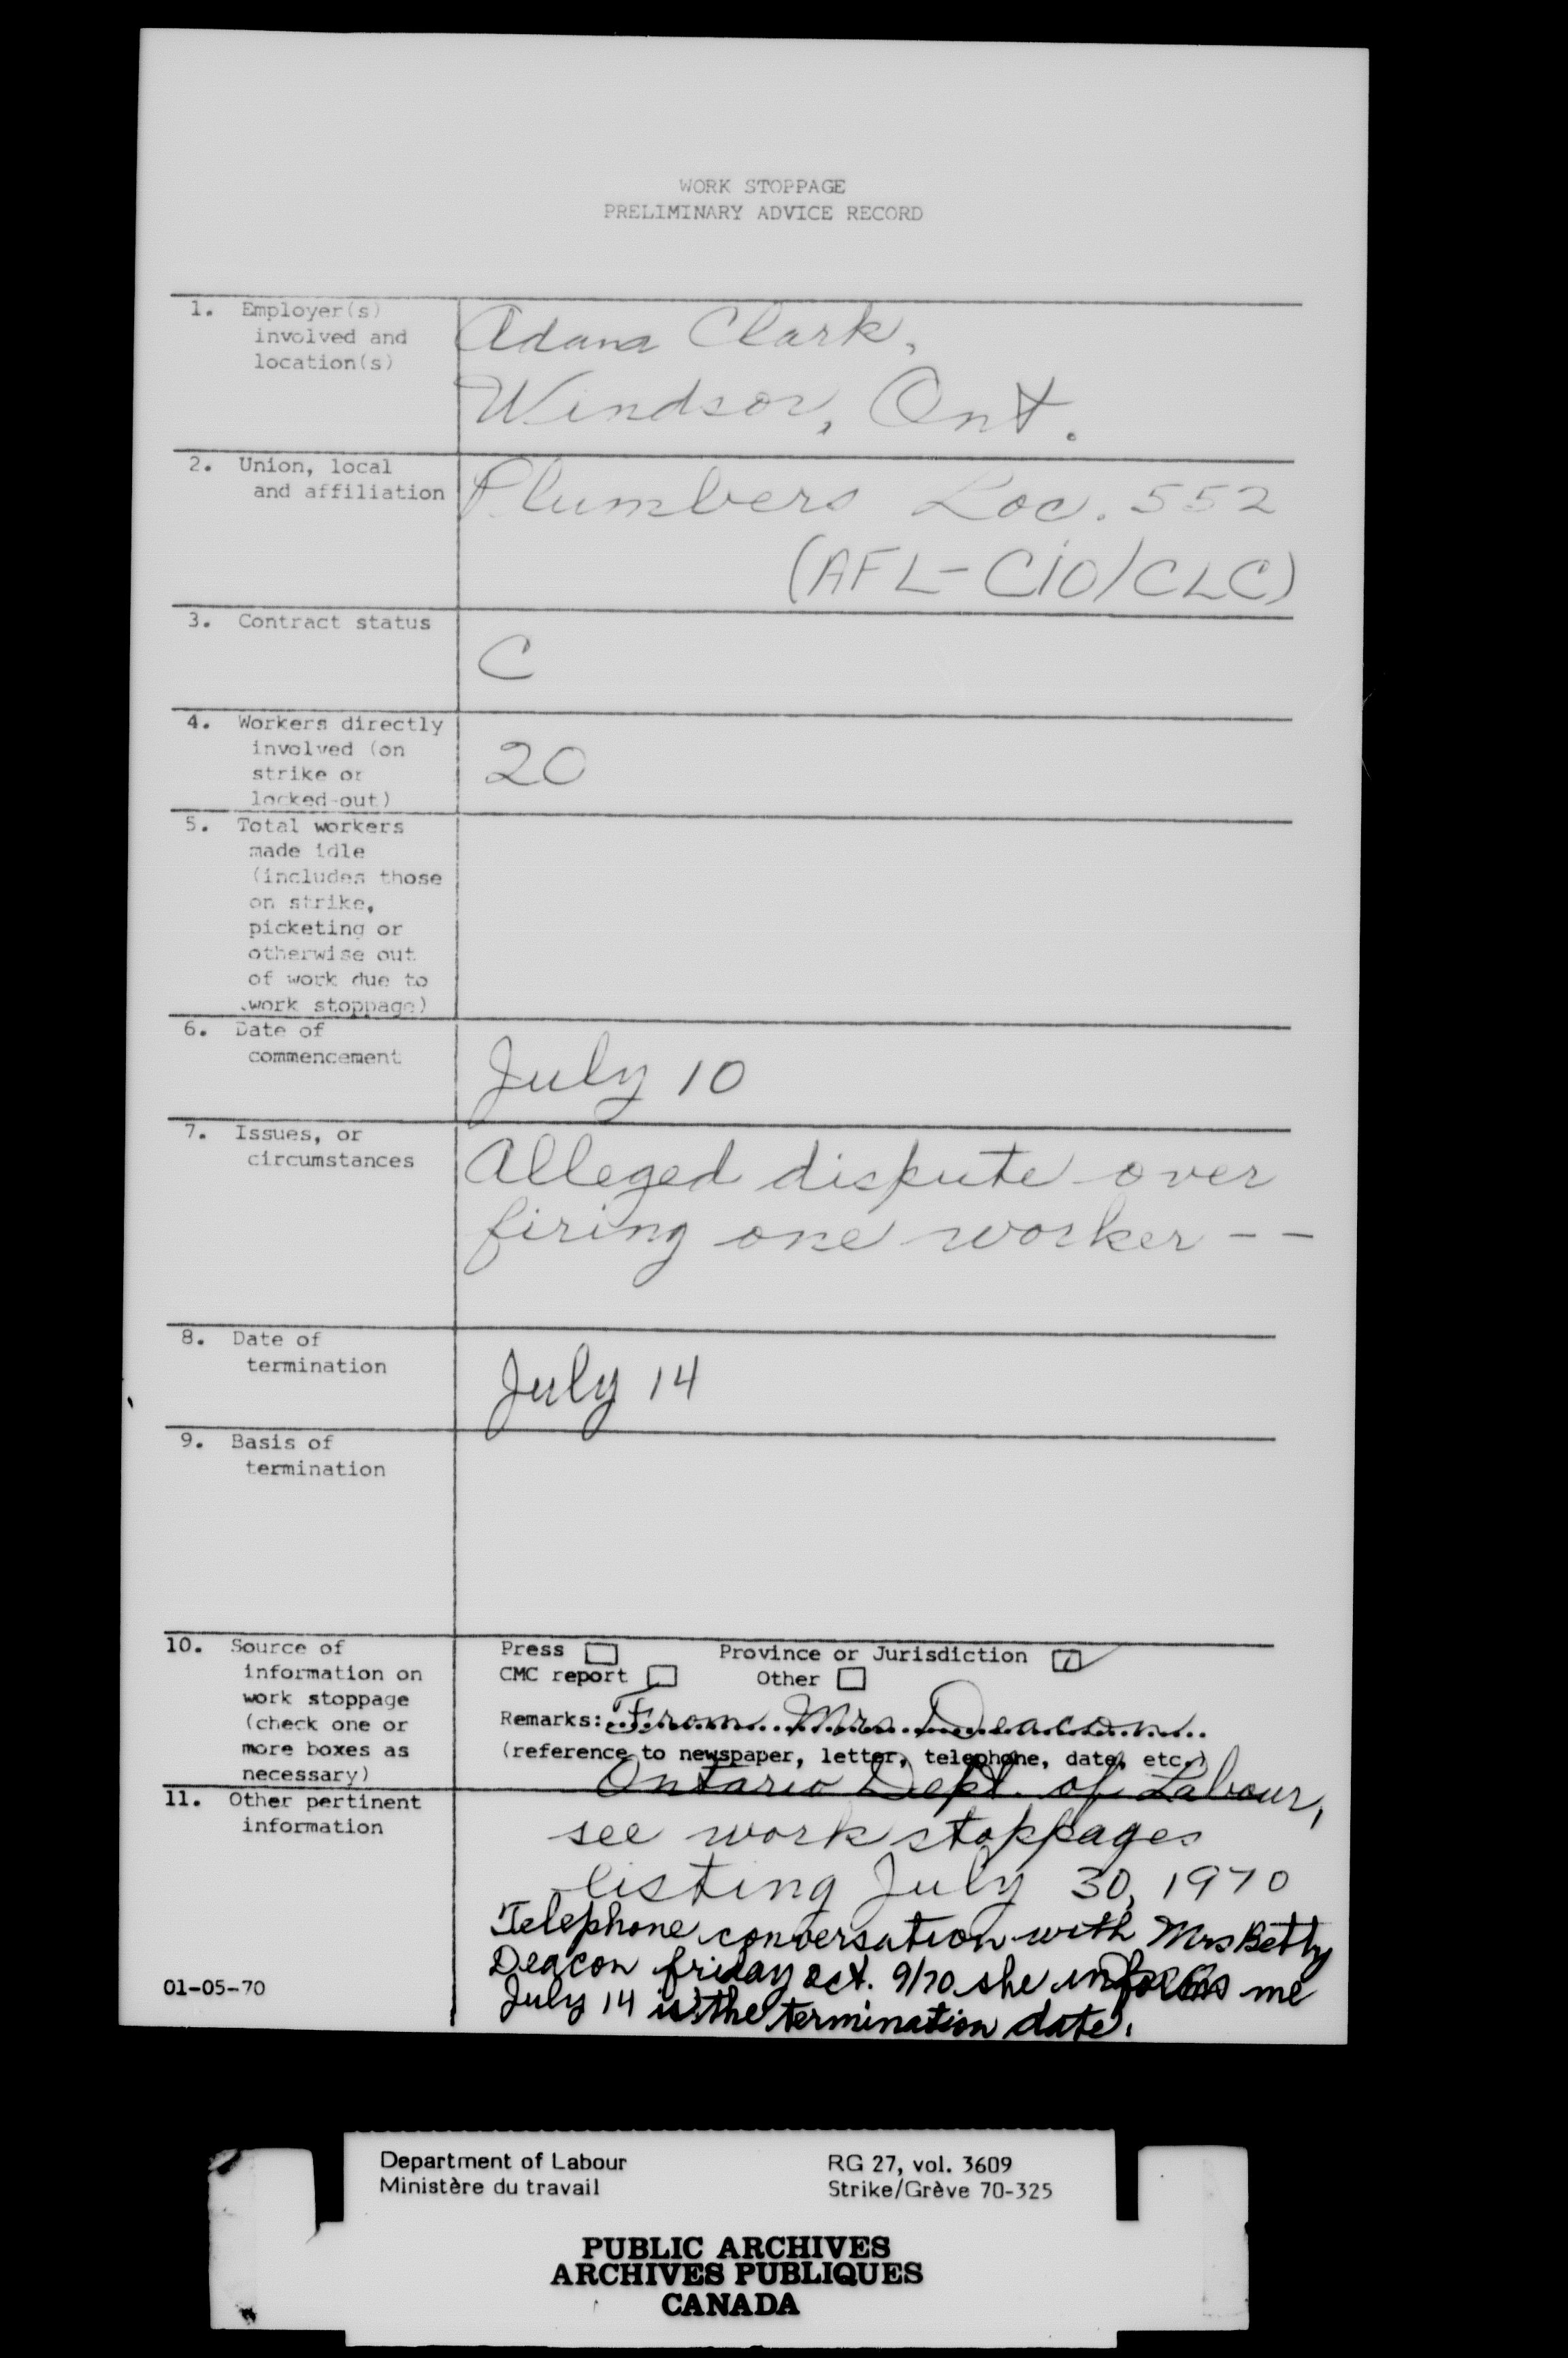 WORK STOPPAGE
PRELIMINARY ADVICE RECORD
1. Employer(s)
involved and
location(s)
Adana Clark,
Windsor, Ont.
2. Union, local
and affiliation
Plumbers Loc. 552
(AFL-CIO/CLC)
3. Contract status
C
4. Workers directly
involved (on
strike or
locked-out)
20
5. Total workers
made idle
(includes those
on strike,
picketing or
otherwise out
of work due to
work stoppage)
6. Date of
commencement
July 10
7. Issues, or
circumstances
Alleged dispute over
firing one worker - -
8. Date of
termination
July 14
9. Basis of
termination
10. Source of
information on
work stoppage
(check one or
more boxes as
necessary)
Press Province or Jurisdiction
CMC report Other
Remarks: From Mrs Deacon
(reference to newspaper, letter, telephone, date, etc.)
Ontario Dept. of Labour,
11. Other pertinent
information
see work stoppages
listing July 30, 1970
Telephone conversation with Mrs Betty
Deacon friday Oct. 9/70 she informs me
July 14 is the termination date.
01-05-70
Department of Labour
Ministère du travail
RG 27, vol. 3609
Strike/Grève 70-325
PUBLIC ARCHIVES
ARCHIVES PUBLIQUES
CANADA